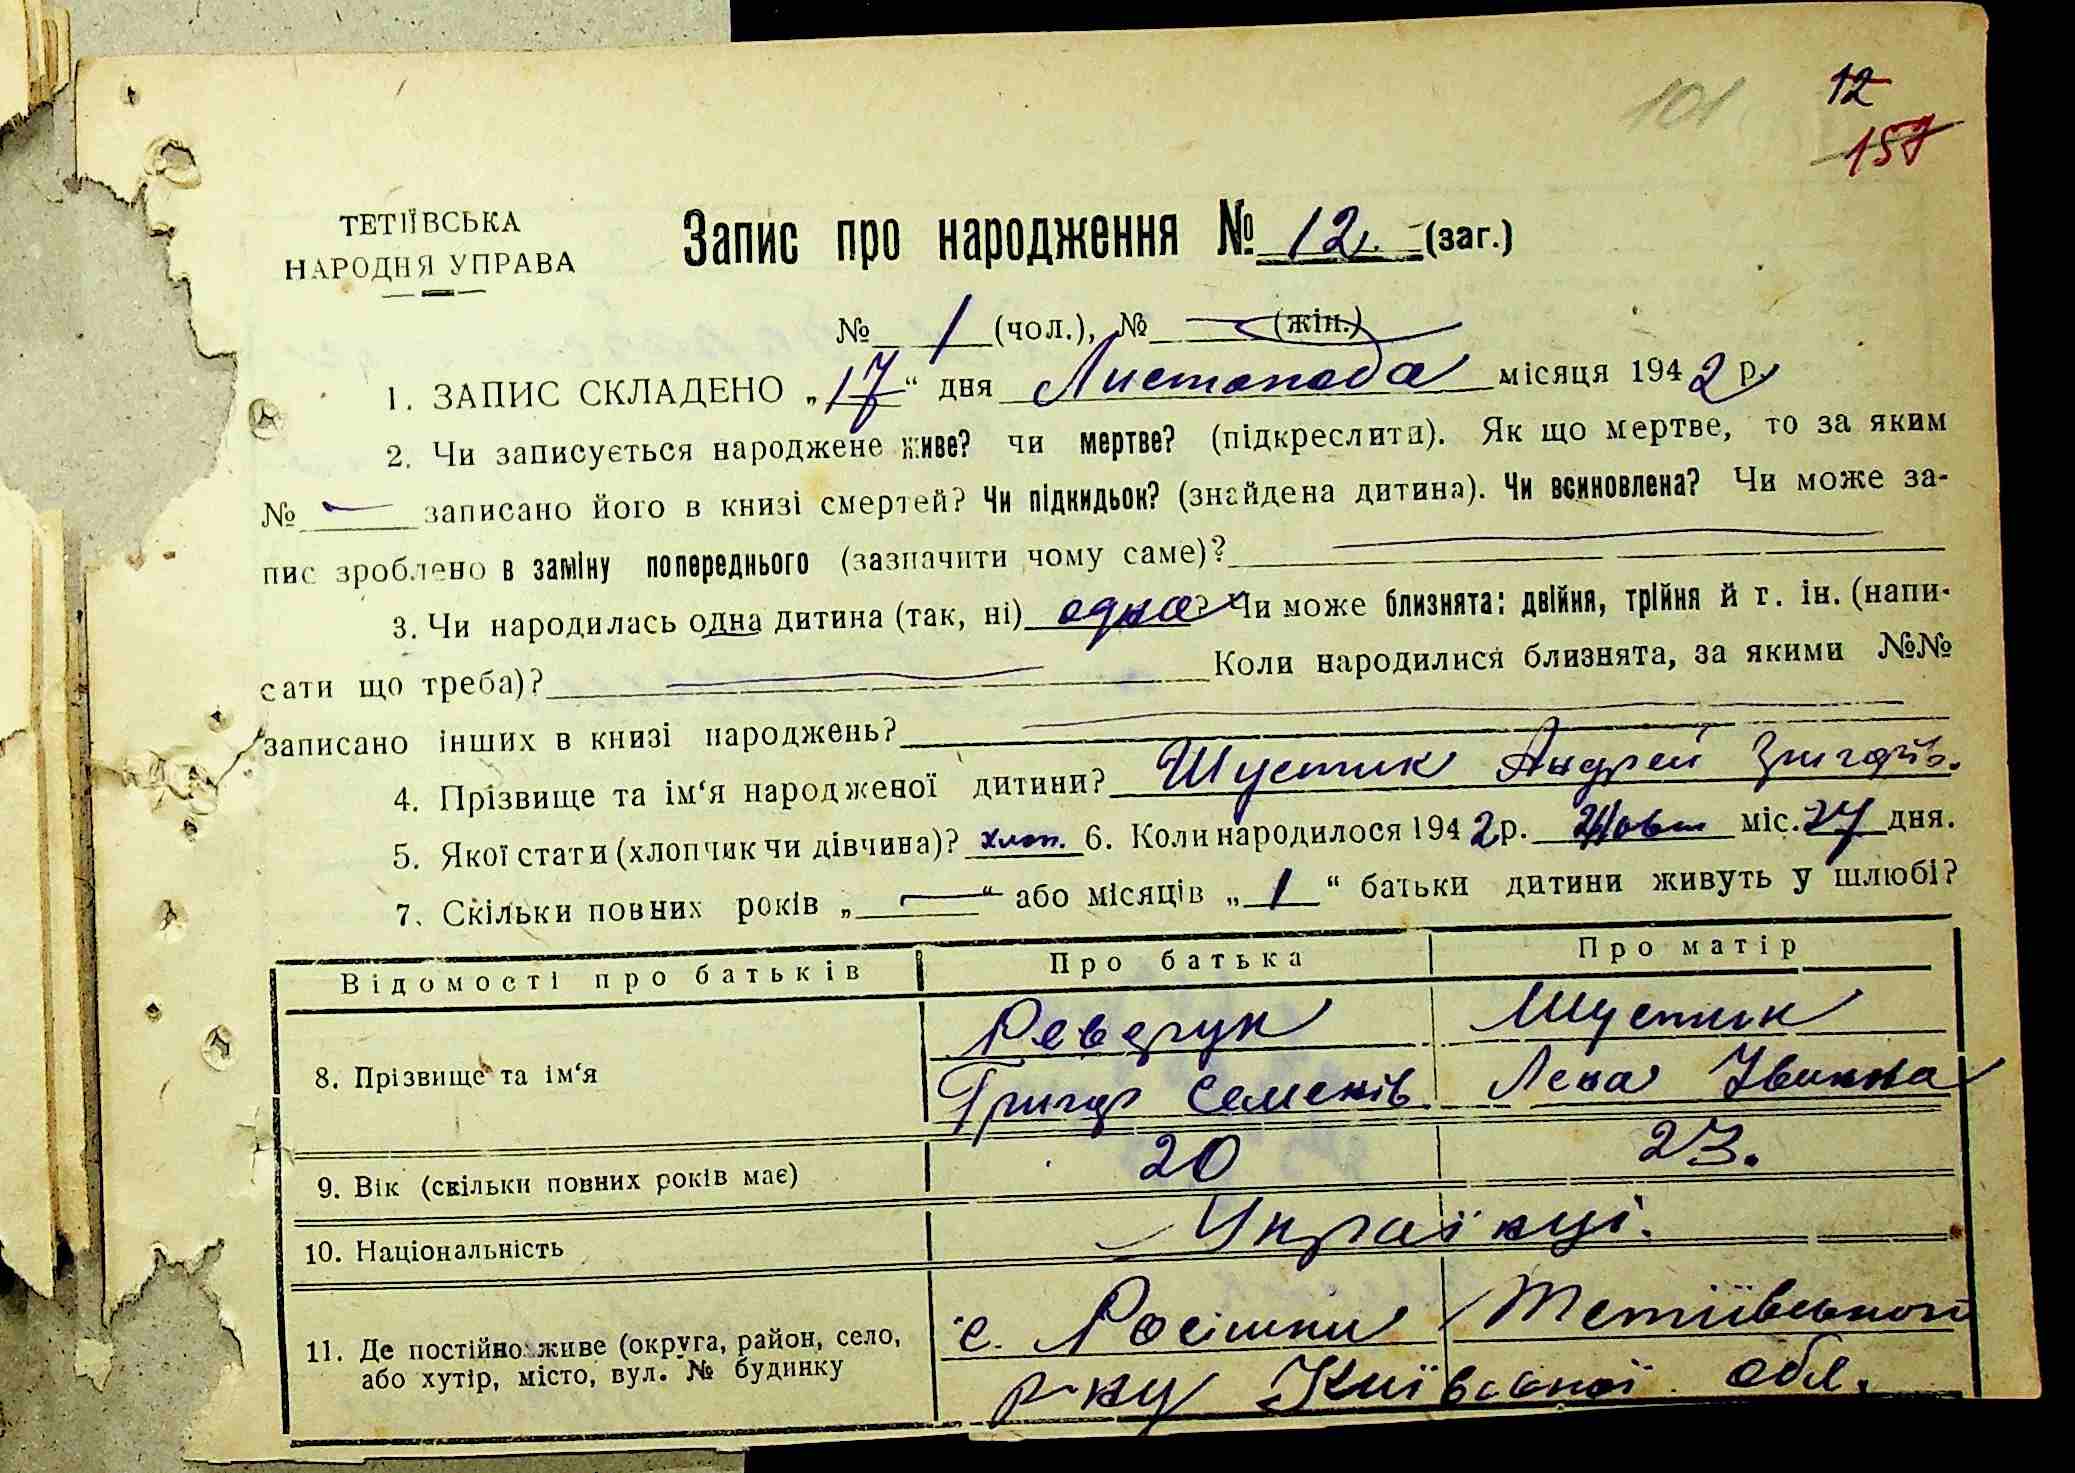 101
12
157
ТЕТІЇВСЬКА
НАРОДНЯ УПРАВА
Запис про народження № 12. (заг.)
№ 1 (чол.), № — (жін.)
1. ЗАПИС СКЛАДЕНО „17“ дня Листопада місяця 1942 р.
2. Чи записується народжене живе? чи мертве? (підкреслити). Як що мертве, то за яким
№ — записано його в книзі смертей? Чи підкидьок? (знайдена дитина). Чи всиновлена? Чи може за-
пис зроблено в заміну попереднього (зазначити чому саме)? —
3. Чи народилась одна дитина (так, ні) одна? Чи може близнята: двійня, трійня й т. ін. (напи-
сати що треба)? — Коли народилися близнята, за якими №№
записано інших в книзі народжень? —
4. Прізвище та ім‘я народженої дитини? Шустик Андрей Григорів.
5. Якої стати (хлопчик чи дівчина)? хлоп. 6. Коли народилося 1942 р. Жовт міс. 27 дня.
7. Скільки повних років „—“ або місяців „1“ батьки дитини живуть у шлюбі?
Відомості про батьків Про батька Про матір
8. Прізвище та ім‘я
Шустик
Григор Семенів Лена Івановна
9. Вік (скільки повних років має) 20 23.
10. Національність Українці.
11. Де постійно живе (округа, район, село,
або хутір, місто, вул. № будинку
с. Росішки Тетіївського
р-ну Київської обл.